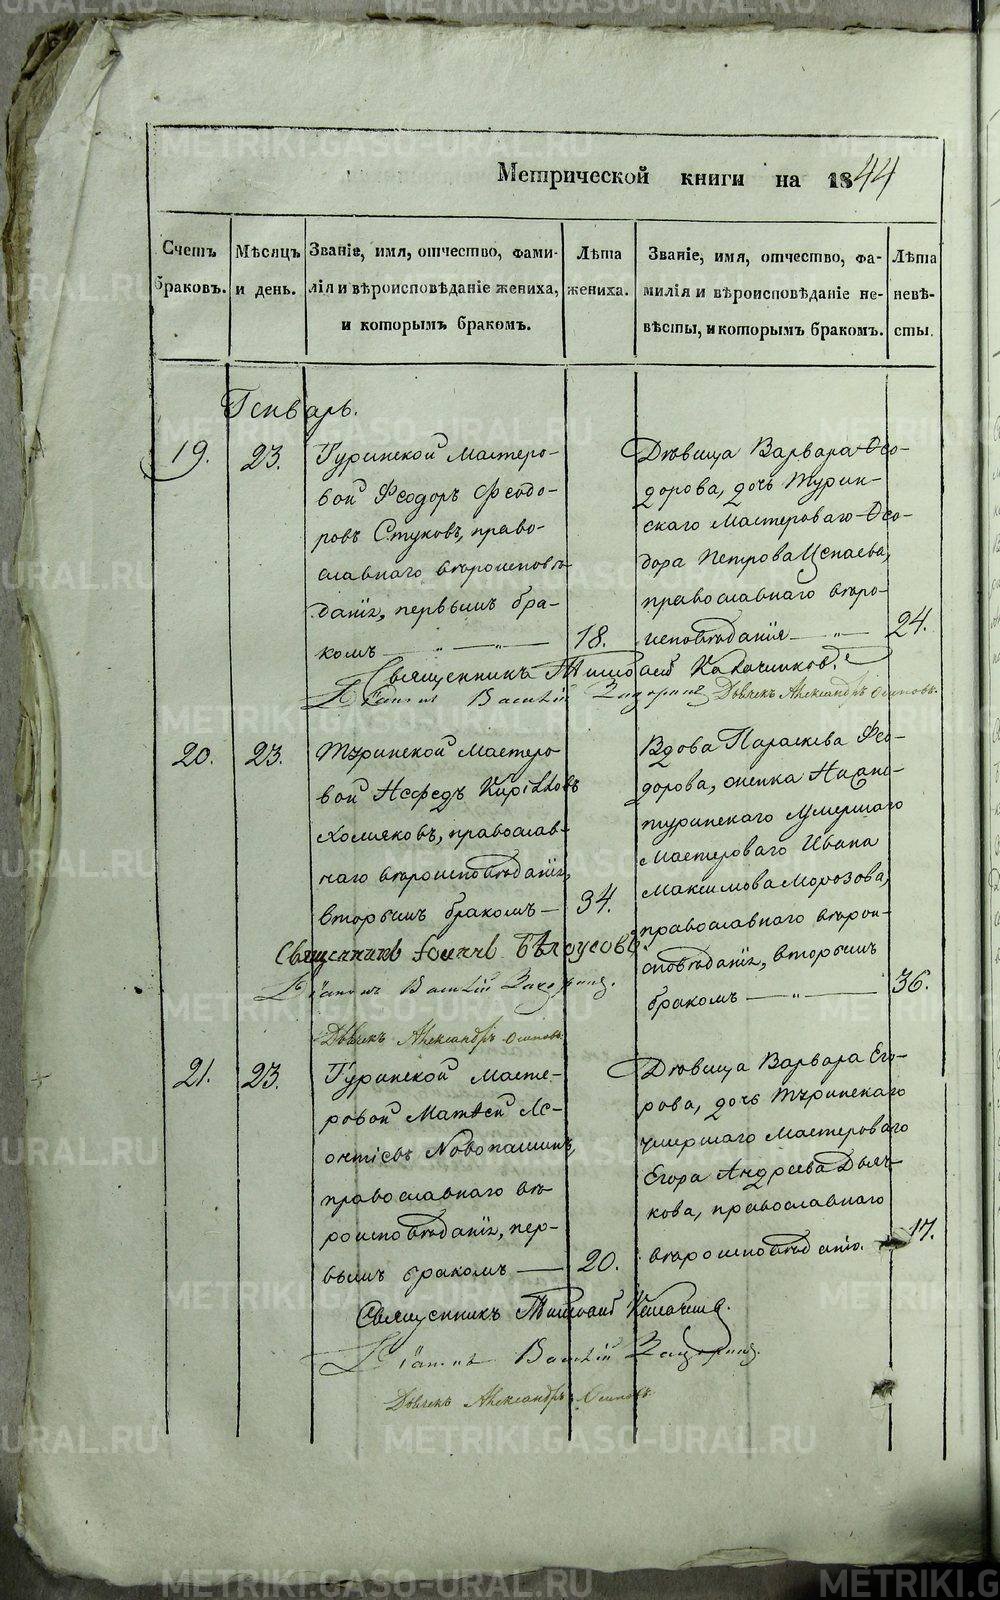 Метрической книги на 1844
Счетъ браковъ.
Мѣсяцъ и день.
Званіе, имя, отчество, фами-
лія и вѣроисповѣданіе жениха,
и которымъ бракомъ.
Лѣта жениха.
Званіе, имя, отчество, фа-
милія и вѣроисповѣданіе не-
вѣсты, и которымъ бракомъ.
Лѣта невѣ-
сты.
Генварь.
19.
23.
Туринской Мастеро-
вой Феодоръ Феодо-
ровъ Стуковъ, право-
славнаго вѣроисповѣ-
данія, первымъ бра-
комъ — „ — „ —
18.
Дѣвица Варвара Ѳео-
дорова, дочь Турин-
скаго Мастероваго Ѳео-
дора Петрова
православнаго вѣро-
исповѣданія — „ —
24.
Священникъ
Діаконъ Василій Дьячекъ Александръ Осиповъ.
20.
23.
Туринской Мастеро-
вой Кириловъ
Хомяковъ, православ-
наго вѣроисповѣданія,
вторымъ бракомъ —
34.
Вдова Параскева Фео-
дорова, жепка Нижне-
туринскаго умершаго
Мастероваго Ивана
Максимова Морозова,
православнаго вѣрои-
сповѣданія, вторымъ
бракомъ — „ —
36.
Священникъ Іоаннъ Бѣлоусовъ.
Діаконъ Василій
Дьячекъ Александръ Осиповъ.
21.
23.
Туринской Масте-
ровой Матвей Ле-
онтіевъ Новопашинъ,
православнаго вѣ-
роисповѣданія, пер-
вымъ бракомъ —
20.
Дѣвица Варвара Его-
рова, дочь Туринскаго
умершаго Мастероваго
Егора Андреева Дьяч-
кова, православнаго
вѣроисповѣданія.
17.
Священникъ
Діаконъ Василій
Дьячекъ Александръ Осиповъ.
METRIKI.GASO-URAL.RU